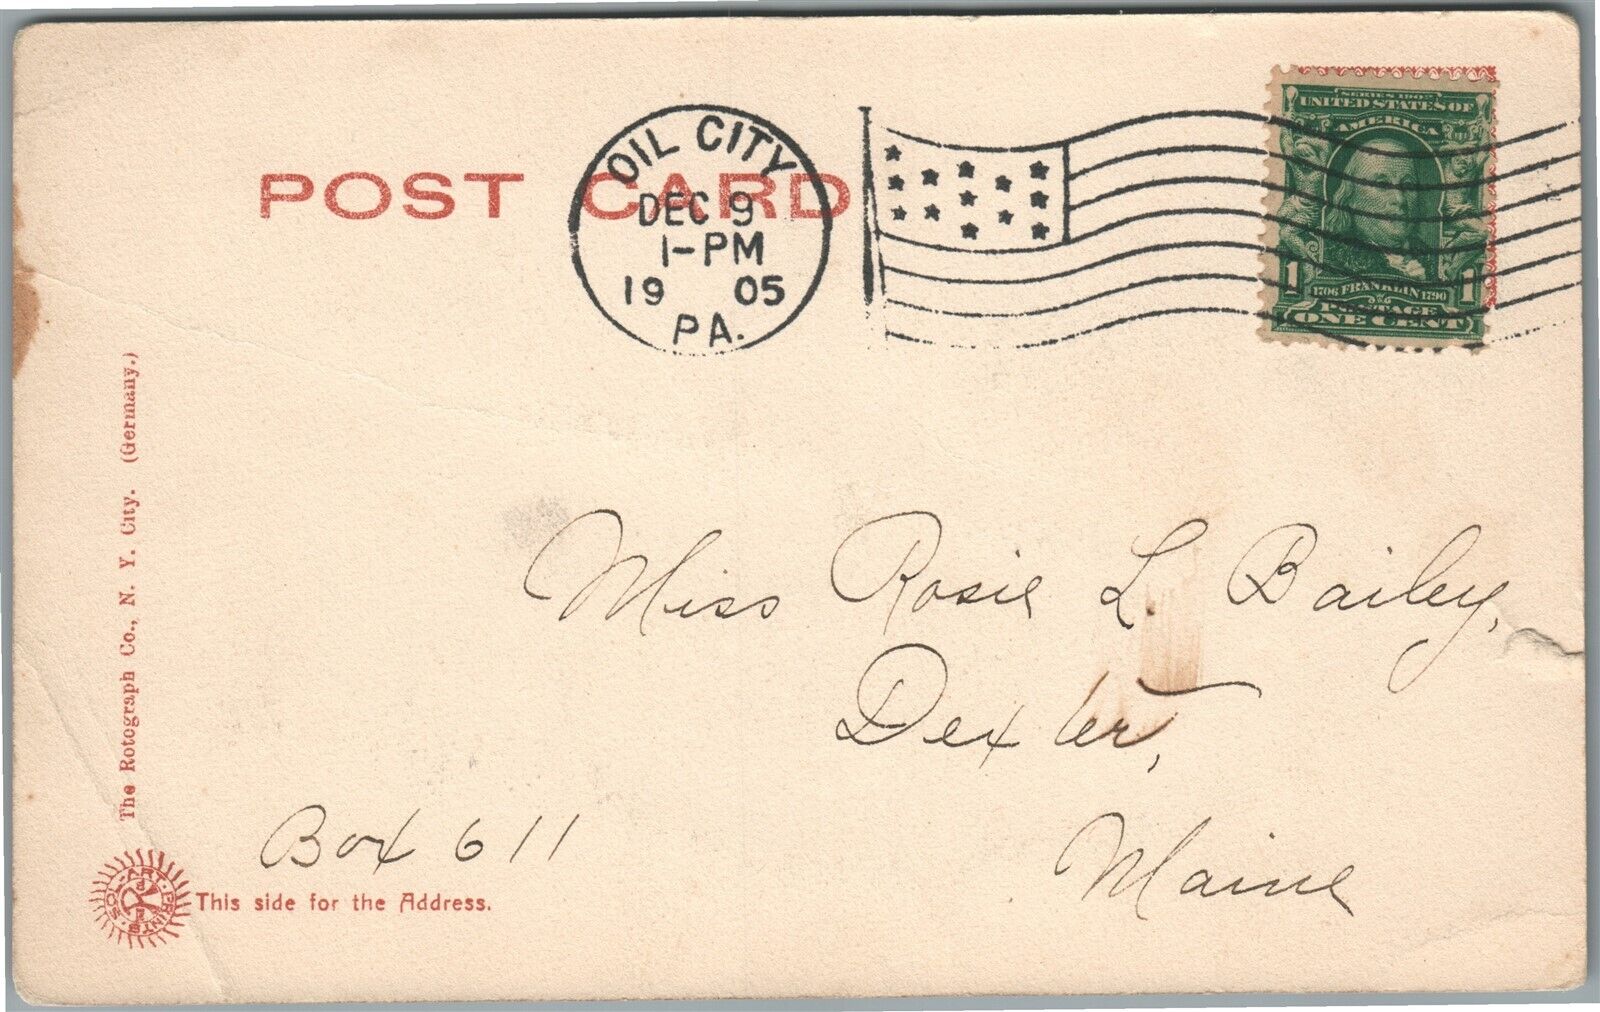 POST CARD
OIL CITY
DEC 9
1-PM
19 05
PA.
SERIES 1902
UNITED STATES OF
AMERICA
1 1706 FRANKLIN 1790 1
POSTAGE
ONE CENT
The Rotograph Co., N. Y. City. (Germany.)
Miss Rosie L. Bailey,
Dexter,
Maine
Box 611
SOL-ART-PRINTS
This side for the Address.